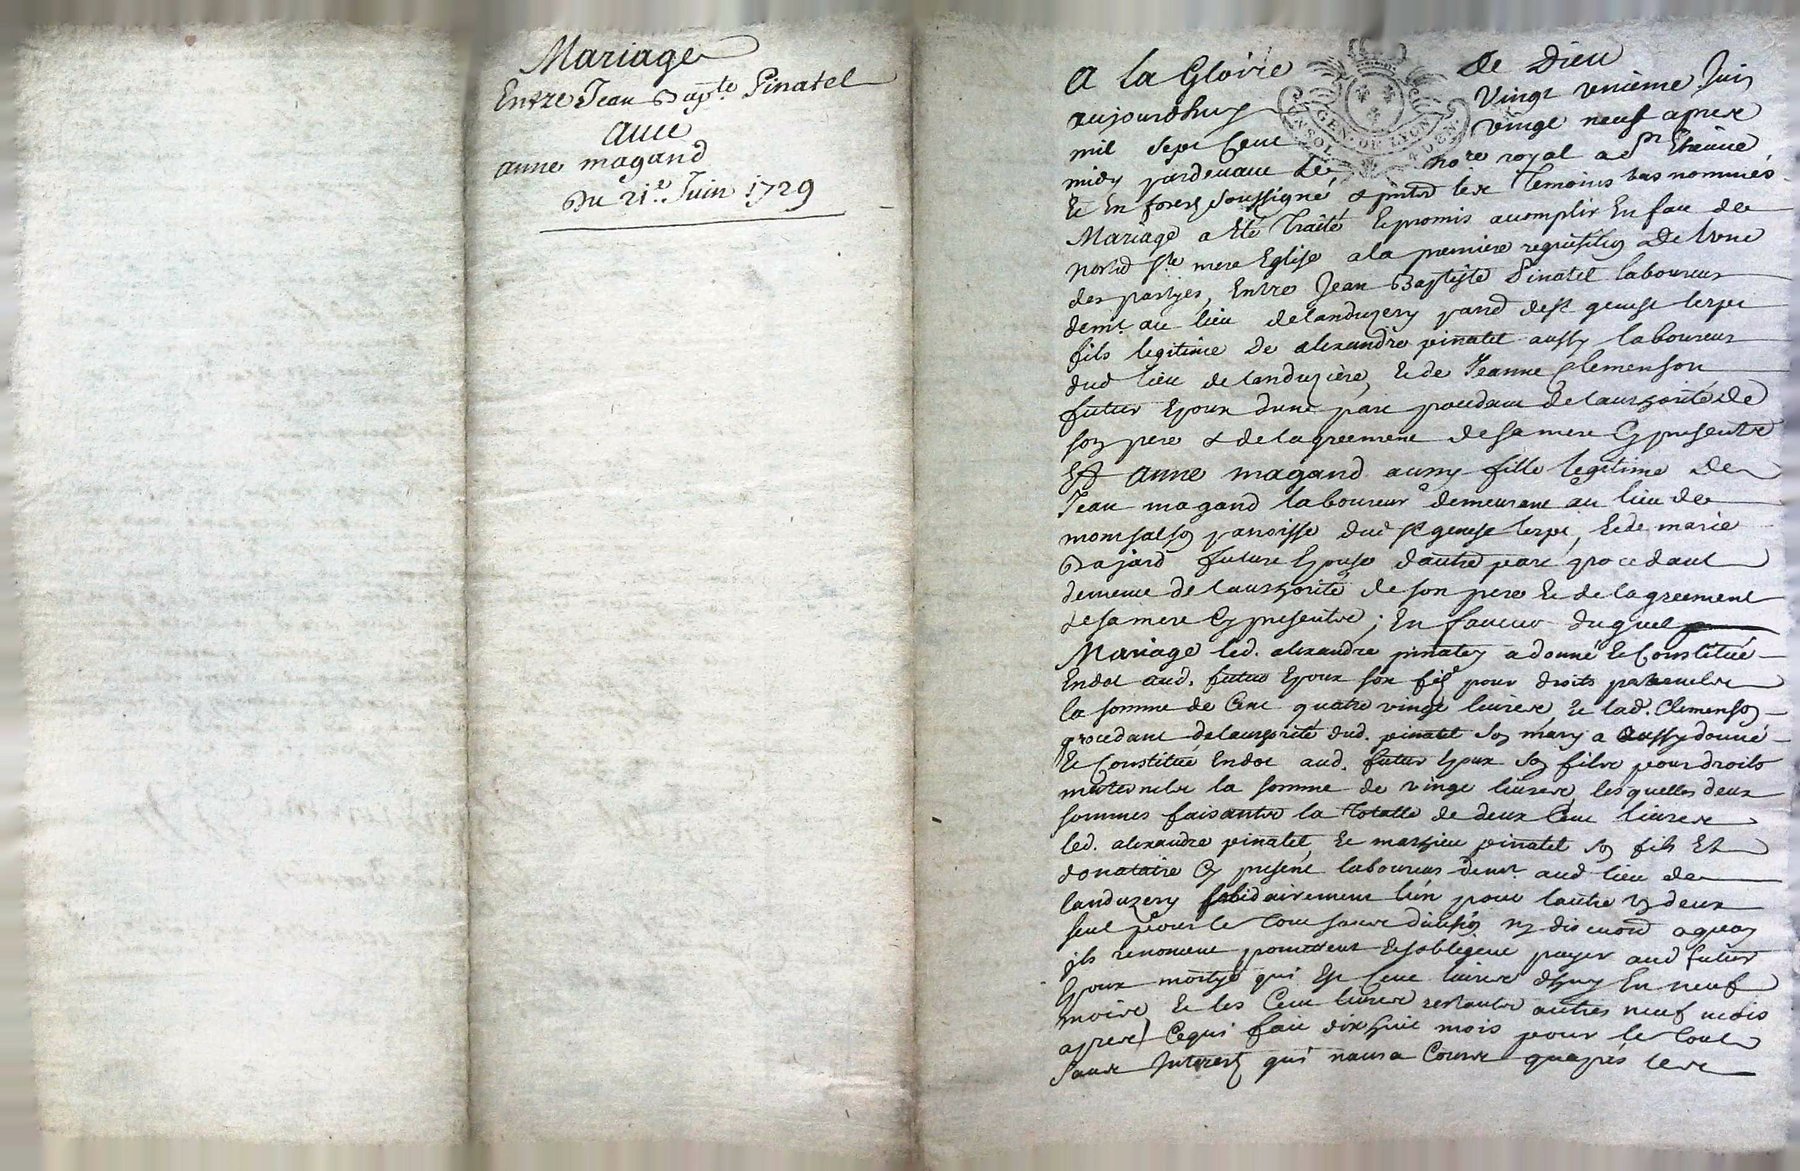 Mariage
Entre Jean Bapte Pinatel
avec
anne magand
Du 21e Juin 1729
A la Gloire de Dieu
aujourdhuy Vingt unieme Juin
mil sept Cent vingt neuf apres
midy pardevant le nore royal a St Etienne
Et En forest soussigné & presents les Temoins bas nommés
Mariage a Eté Traité Et promis acomplir En face de
nostre Ste mere Eglise a la premiere requisition De Lune
des partyes, Entre Jean Baptiste Pinatel laboureur
demt au lieu de landuzery parr de st genest lerpt
fils legitime De alexandre pinatel aussy laboureur
dud lieu de landuzière, Et de Jeanne Clemenson
futur Epoux dune part procedant De lauthorité De
son pere & de lagreement de sa mere Cy presents
Et Anne magand aussy fille legitime De
Jean magand laboureur demeurant au lieu de
montsalson parroisse dud st genest lerpt, Et de marie
Bajard future Epouse dautre part procedant
de meme de lauthorité de son pere Et de lagreement
de sa mere Cy presents; En faveur duquel
Mariage led. alexandre pinatel a donné Et Constitué
En dot aud. futur Epoux son fils pour droits paternels
la somme de Cent quatre vingt livres Et lad. Clemenson
procedant de lauthorité dud. pinatel son mary a aussy donné
Et Constitué En dot aud. futur Epoux son fils pour droits
maternels la somme de vingt livres, lesquelles deux
sommes faisants la Totalle de deux Cent livres
led. alexandre pinatel Et mathieu pinatel son fils Et
donataire Cy present laboureur demt aud lieu de
landuzery solidairement lun pour lautre un deux
seul pour le tout sans division ny discution a quoy
ils renoncent promettent Et sobligent payer aud futur
Epoux moityé qui Est Cent livres dhuy En neuf
mois, Et les Cent livres restants autres neuf mois
apres, Ce qui fait dix huit mois pour le tout
sans Interest qui naura Cours quapres les